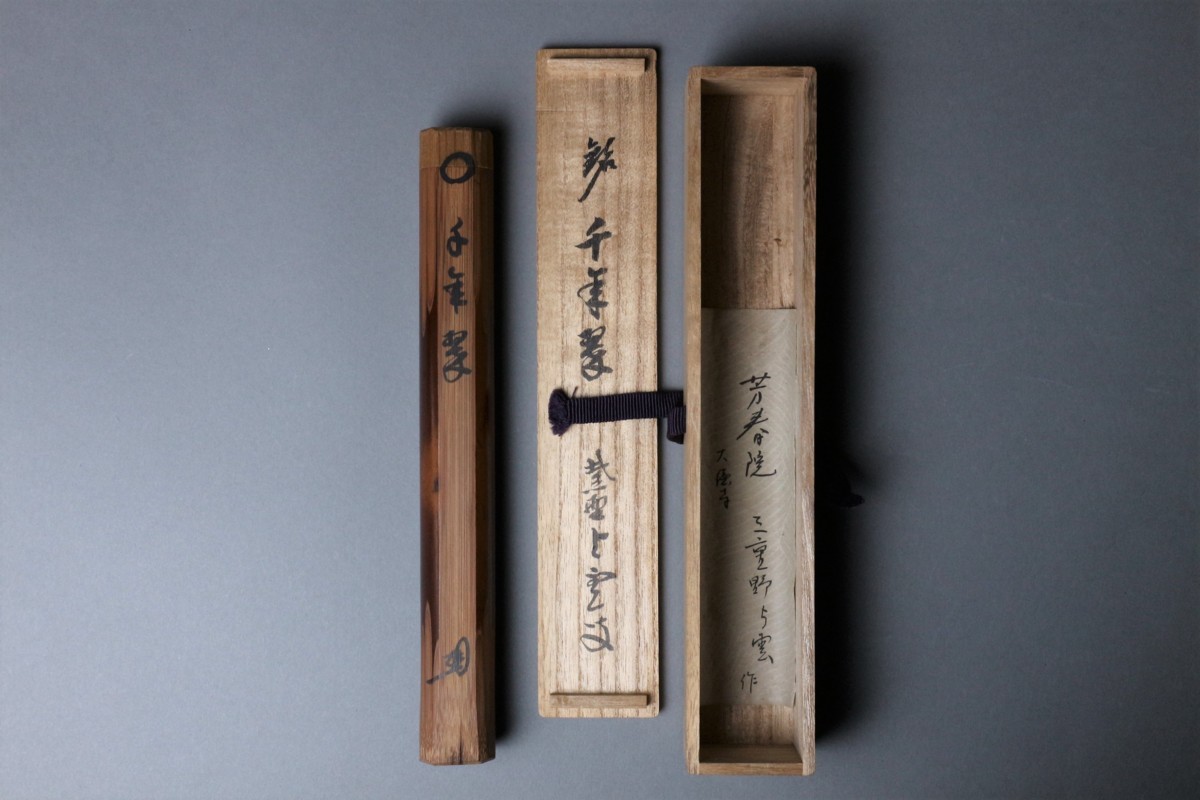 〇 千年翠
銘 千年翠 与雲
芳春院 三重野与雲 作
大徳寺